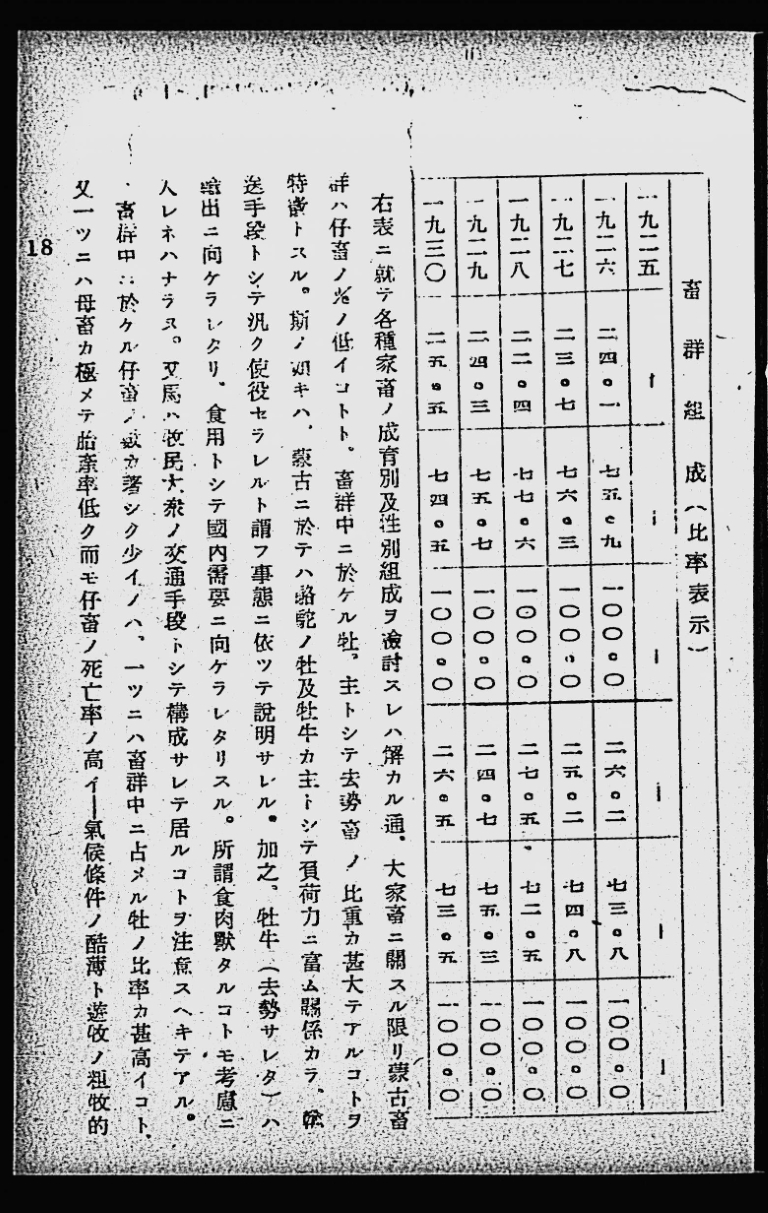 畜群組成（比率表示）
一九二五 ー ー ー ー ー ー
一九二六 二四。一 七五。九 一〇〇。〇 二六。二 七三。八 一〇〇。〇
一九二七 二三。七 七六。三 一〇〇。〇 二五。二 七四。八 一〇〇。〇
一九二八 二二。四 七七。六 一〇〇。〇 二七。五 七二。五 一〇〇。〇
一九二九 二四。三 七五。七 一〇〇。〇 二四。七 七五。三 一〇〇。〇
一九三〇 二五。五 七四。五 一〇〇。〇 二六。五 七三。五 一〇〇。〇
右表ニ就テ各種家畜ノ成育別及性別組成ヲ檢討スレハ解カル通、大家畜ニ關スル限リ蒙古畜
群ハ仔畜ノ％ノ低イコトト、畜群中ニ於ケル牡、主トシテ去勢畜ノ比重カ甚大テアルコトヲ
特徵トスル。斯ノ如キハ、蒙古ニ於テハ駱駝ノ牡及牡牛カ主トシテ負荷力ニ富ム關係カラ、
送手段トシテ汎ク使役セラレルト謂フ事態ニ依ツテ説明サレル。加之、牡牛（去勢サレタ）ハ
輸出ニ向ケラレタリ、食用トシテ國内需要ニ向ケラレタリスル。所謂食肉獸タルコトモ考慮ニ
入レネハナラヌ。又馬ハ牧民大衆ノ交通手段トシテ構成サレテ居ルコトヲ注意スヘキテアル。
畜群中ニ於ケル仔畜ノ數カ著シク少イノハ、一ツニハ畜群中ニ占メル牡ノ比率カ甚高イコト、
又一ツニハ母畜カ極メテ胎產率低ク而モ仔畜ノ死亡率ノ高イ―氣候條件ノ酷薄ト遊牧ノ粗牧的
18